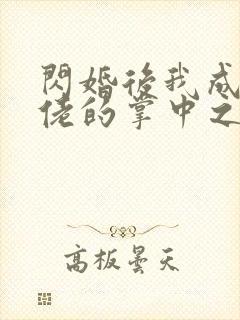 閃婚後我成
佬的掌中之
高板曇天